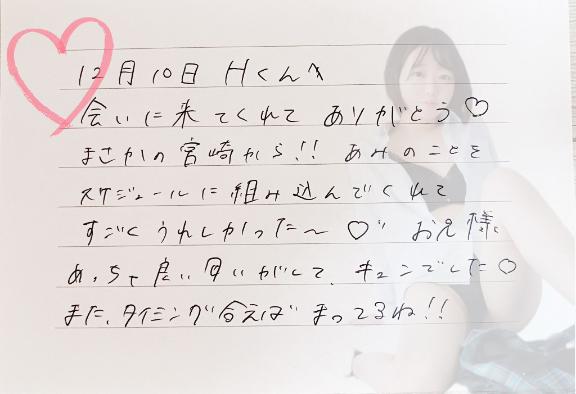 12月10日 Hくんへ
会いに来てくれて ありがとう♡
まさかの宮崎から!! あみのことを
スケジュールに組み込んでくれて
すごくうれしかった〜♡” お兄様
めっちゃ良い匂いがして、キュンでした♡
また、タイミング合えば まってるね!!